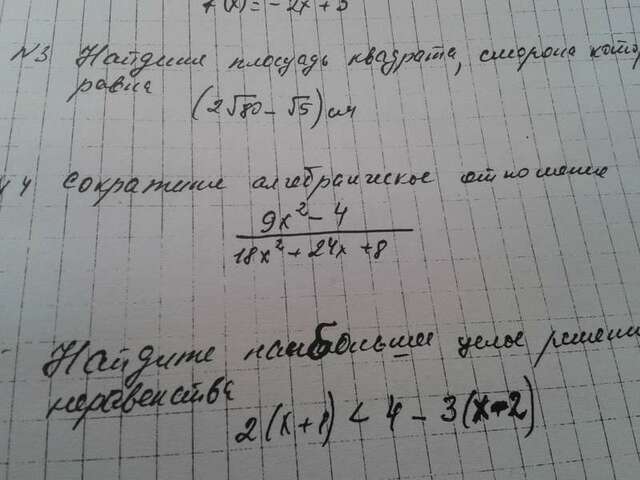 f(x) = -2x + 3
N3 Найдите площадь квадрата, сторона кото
равна
(2√80 - √5) см
4 Сократите алгебраическое отношение
9x² - 4
18x² + 24x + 8
Найдите наибольшее целое решени
неравенства
2(x+1) < 4 - 3(x-2)